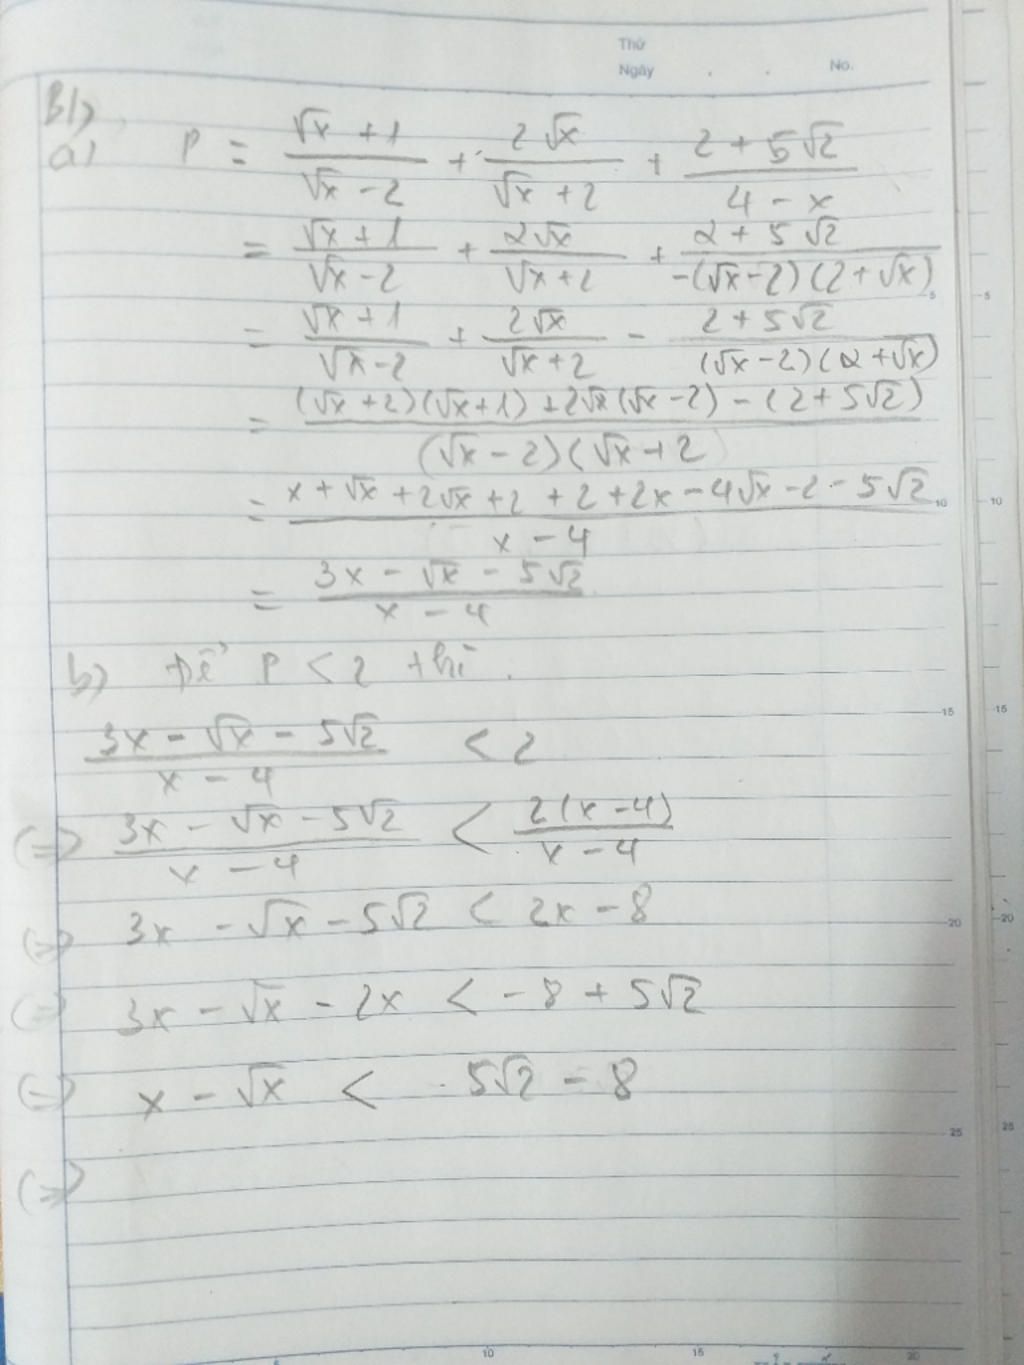 Thứ
Ngày . . No.
B1,
a) P = (√x + 1)/(√x - 2) + (2√x)/(√x + 2) + (2 + 5√2)/(4 - x)
= (√x + 1)/(√x - 2) + (2√x)/(√x + 2) + (2 + 5√2)/(-(√x - 2)(2 + √x))
= (√x + 1)/(√x - 2) + (2√x)/(√x + 2) - (2 + 5√2)/((√x - 2)(2 + √x))
= ((√x + 2)(√x + 1) + 2√x(√x - 2) - (2 + 5√2))/((√x - 2)(√x + 2)
= (x + √x + 2√x + 2 + 2 + 2x - 4√x - 2 - 5√2)/(x - 4)
= (3x - √x - 5√2)/(x - 4)
b) Để P < 2 thì.
(3x - √x - 5√2)/(x - 4) < 2
(=) (3x - √x - 5√2)/(x - 4) < (2(x - 4))/(x - 4)
(=) 3x - √x - 5√2 < 2x - 8
(=) 3x - √x - 2x < - 8 + 5√2
(=) x - √x < 5√2 - 8
(=)
5
5
10
10
15
15
20
20
25
25
10 15 20